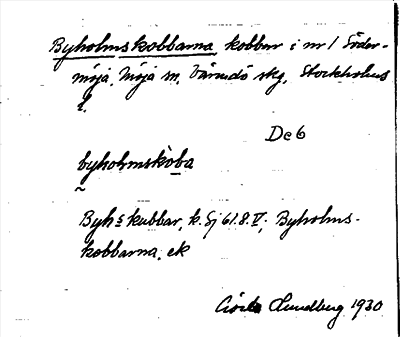 Byholmskobbarna kobbar i nr 1 Söder-
möja, Möja sn, Värmdö skg, Stockholms
l.
De 6
byholmskòba
Byh.s kubbar, k. Sj 61.8.V; Byholms-
kobbarna, ek
Gösta Lundberg 1930